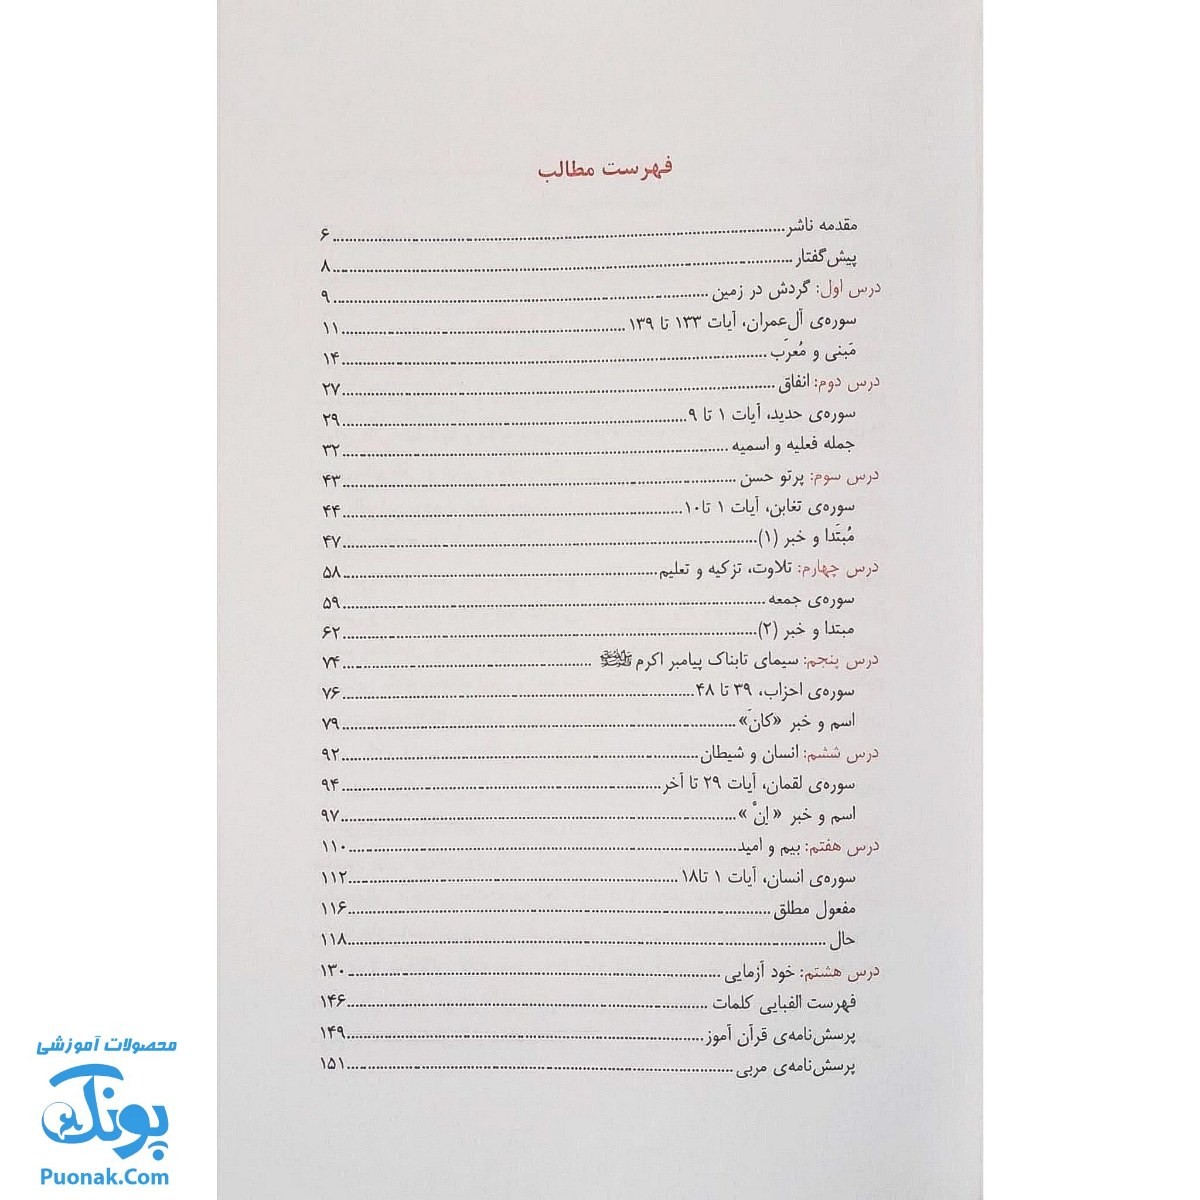 فهرست مطالب
مقدمه ناشر ۶
پیش‌گفتار ۸
درس اول: گردش در زمین ۹
سوره‌ی آل‌عمران، آیات ۱۳۳ تا ۱۳۹ ۱۱
مَبنی و مُعرَب ۱۴
درس دوم: انفاق ۲۷
سوره‌ی حدید، آیات ۱ تا ۹ ۲۹
جمله فعلیه و اسمیه ۳۲
درس سوم: پرتو حسن ۴۳
سوره‌ی تغابن، آیات ۱ تا۱۰ ۴۴
مُبتَدا و خبر (۱) ۴۷
درس چهارم: تلاوت، تزکیه و تعلیم ۵۸
سوره‌ی جمعه ۵۹
مبتدا و خبر (۲) ۶۲
درس پنجم: سیمای تابناک پیامبر اکرم ﷺ ۷۴
سوره‌ی احزاب، ۳۹ تا ۴۸ ۷۶
اسم و خبر «کانَ» ۷۹
درس ششم: انسان و شیطان ۹۲
سوره‌ی لقمان، آیات ۲۹ تا آخر ۹۴
اسم و خبر « اِنْ » ۹۷
درس هفتم: بیم و امید ۱۱۰
سوره‌ی انسان، آیات ۱ تا۱۸ ۱۱۲
مفعول مطلق ۱۱۶
حال ۱۱۸
درس هشتم: خود آزمایی ۱۳۰
فهرست الفبایی کلمات ۱۴۶
پرسش‌نامه‌ی قرآن آموز ۱۴۹
پرسش‌نامه‌ی مربی ۱۵۱
محصولات آموزشی
پونک
Puonak.Com